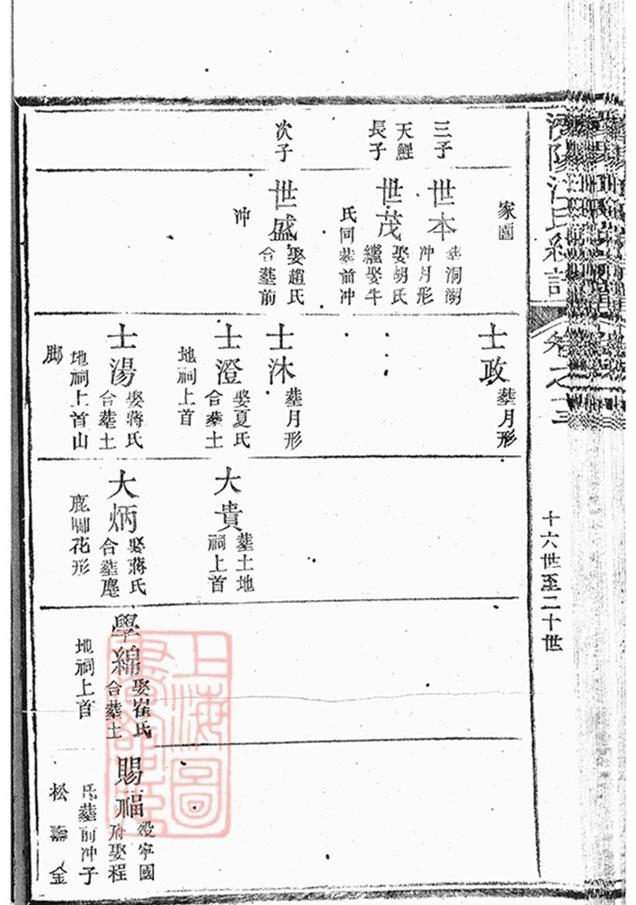 濟陽江氏統譜
卷之
十六世至二十世
家園
三子
世本
葬洞湖
冲月形
天鯉
長子
世茂
娶胡氏
繼娶牛
氏同葬前冲
次子
世盛
娶趙氏
合葬前
冲
士政
葬月形
士沐
葬月形
士澄
娶夏氏
合葬土
地祠上首
士湯
娶蔣氏
合葬土
地祠上首山
脚
大貴
葬土地
祠上首
大炳
娶蔣氏
合葬
鹿啣花形
學綿
娶崔氏
合葬土
地祠上首
賜福
歿寧國
府娶程
氏葬前冲子
松 壽 金
上海圖
書館藏